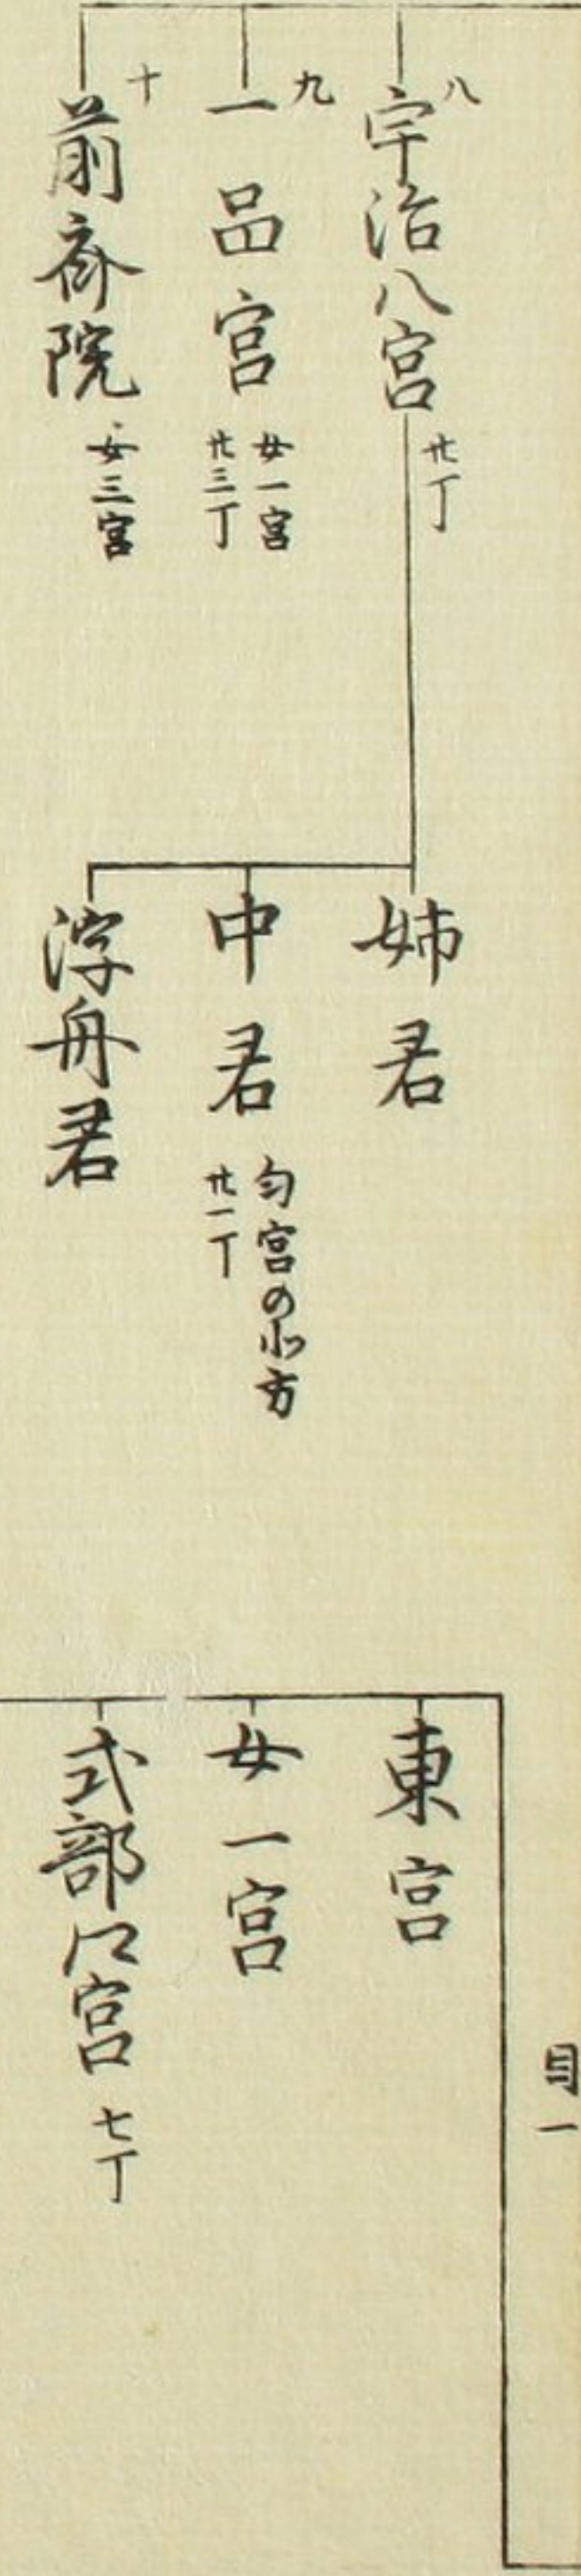 八
宇治八宮
廿丁
九
一品宮
女一宮
廿三丁
十
前斎院
女三宮
姉君
中君
匂宮の北方
廿一丁
浮舟君
目一
東宮
女一宮
式部卩宮
七丁